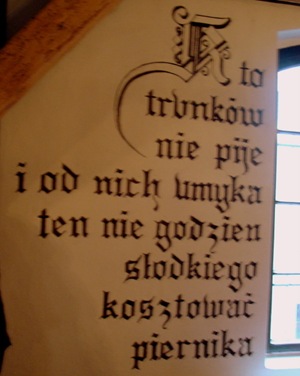 Kto
trvnków
nie pije
i od nich umyka
ten nie godzien
słodkiego
kosztować
piernika